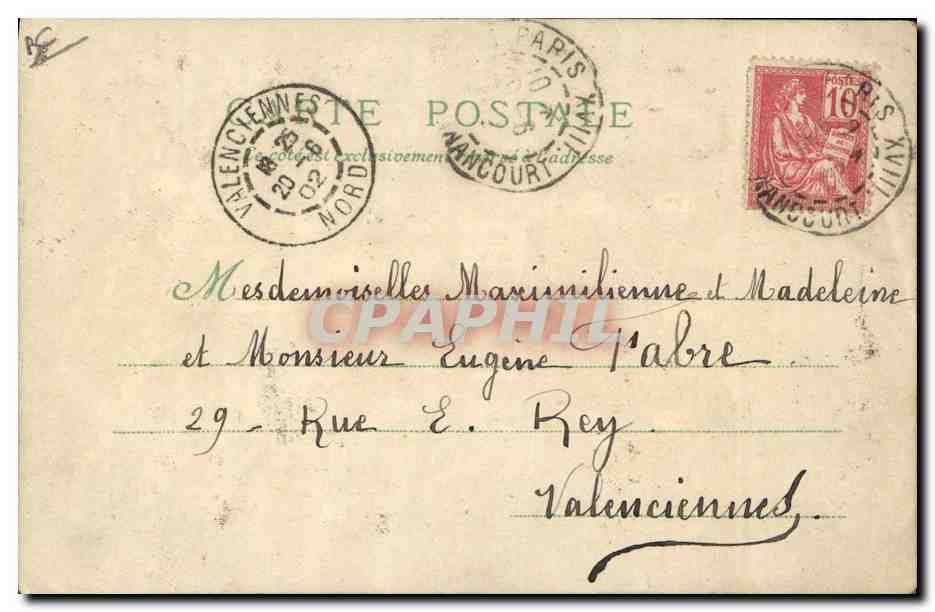 BC
CARTE POSTALE
Ce côté est exclusivement réservé à l'adresse
VALENCIENNES
18 25
20 -6
02
NORD
PARIS XVIII
POSTES
10
RIS XVIII
Mesdemoiselles Maximilienne et Madeleine
et Monsieur Eugène Fabre
29 - Rue E. Rey.
Valenciennes.
CPAPHIL